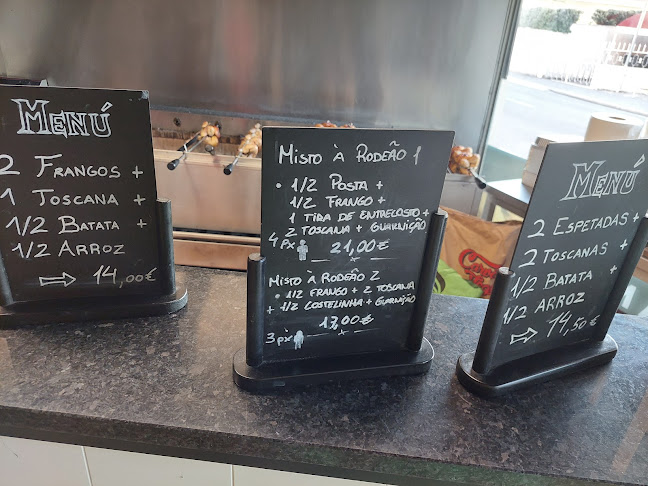 Menú
2 Frangos +
1 Toscana +
1/2 Batata +
1/2 Arroz
→ 14,00€
Misto à Rodeão 1
• 1/2 Posta +
1/2 Frango +
1 Tira de Entrecosto +
2 Toscana + Guarnição
4 Px 21,00€
Misto à Rodeão 2
• 1/2 Frango + 2 Toscana
+ 1/2 Costelinha + Guarnição
17,00€
3 px
Menú
2 Espetadas +
2 Toscanas +
1/2 Batata +
1/2 Arroz
⇨ 14,50€